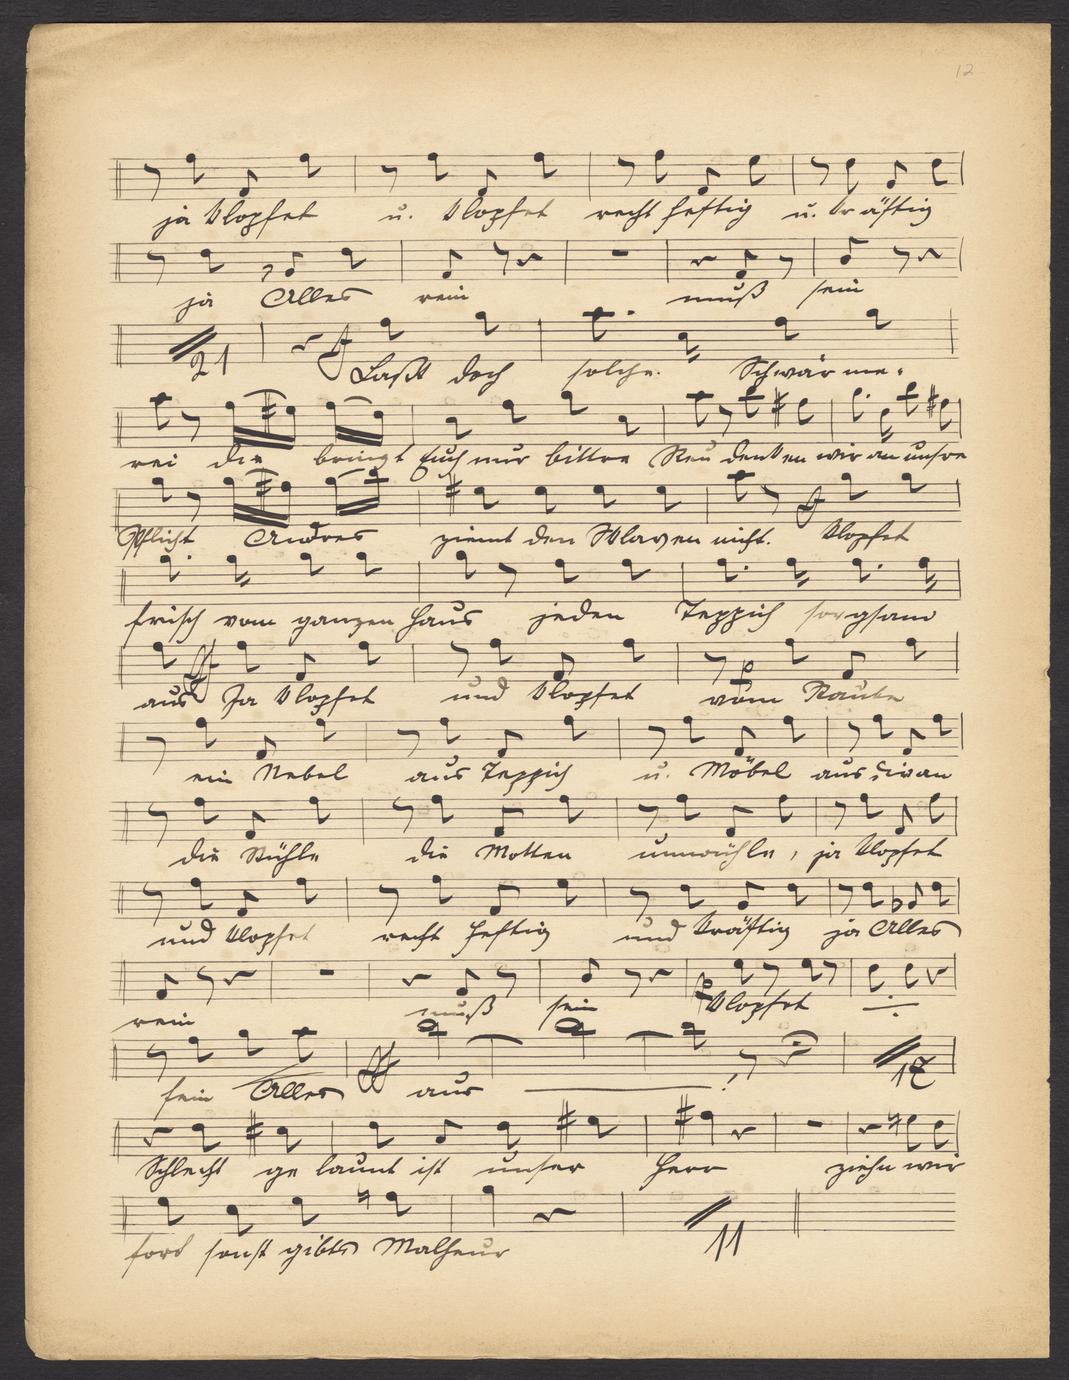 12
ja klopfet u. klopfet recht heftig u. kräftig
ja Alles rein muß sein
21 Laßt doch solche Schwärme-
rei die bringt Euch nur bittre Reu denken wir an unsre
Pflicht Andres ziemt den Sklaven nicht. klopfet
frisch vom ganzen Haus jeden Teppich sorgsam
aus Ja klopfet und klopfet vom Staube
ein Nebel aus Teppich u. Möbel aus Divan
die Stühle die Motten umwühle, ja klopfet
und klopfet recht heftig und kräftig ja Alles
rein muß sein klopfet
sein Alles aus ! 17
Schlecht ge launt ist unser Herr ziehn wir
fort sonst gibts Malheur 11